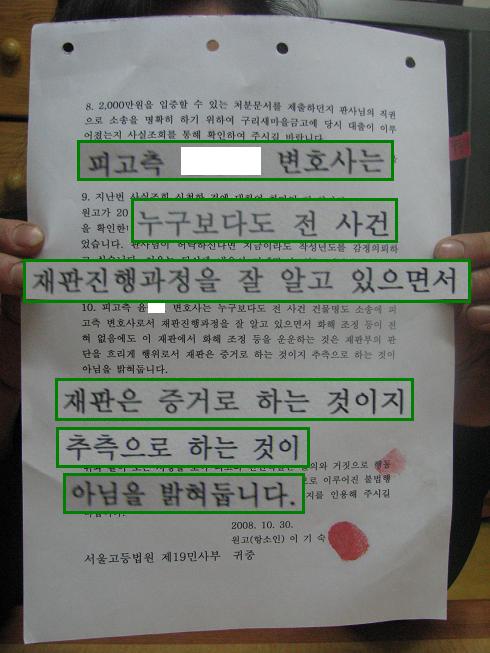 8. 2,000만원을 입증할 수 있는 처분문서를 제출하던지 판사님의 직권
으로 소송을 명확히 하기 위하여 구리새마을금고에 당시 대출이 이루
어졌는지 사실조회를 통해 확인하여 주시길 바랍니다.
피고측 변호사는
9. 지난번 사실조회 신청한
원고가 20
누구보다도 전 사건
을 확인한
었습니다. 판사님이 허락하신다면 지금이라도 작성년도를 감정의뢰하
재판진행과정을 잘 알고 있으면서
10. 피고측 윤 변호사는 누구보다도 전 사건 건물명도 소송에 피
고측 변호사로서 재판진행과정을 잘 알고 있으면서 화해 조정 등이 전
혀 없음에도 이 재판에서 화해 조정 등을 운운하는 것은 재판부의 판
단을 흐리게 행위로서 재판은 증거로 하는 것이지 추측으로 하는 것이
아님을 밝혀둡니다.
재판은 증거로 하는 것이지
추측으로 하는 것이
거짓으로 행동
으로 이루어진 불법행
아님을 밝혀둡니다.
지를 인용해 주시길
2008. 10. 30.
원고(항소인) 이 기 숙
서울고등법원 제19민사부 귀중